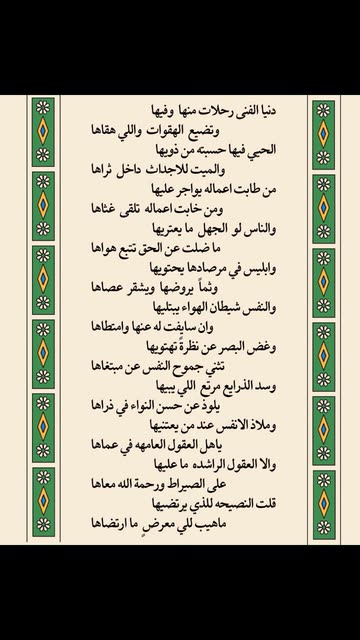 دنيا الفنى رحلات منها وفيها
وتضيع الهقوات واللي هقاها
الحيي فيها حسبته من ذويها
والميت للاجداث داخل ثراها
من طابت اعماله يواجر عليها
ومن خابت اعماله تلقى غثاها
والناس لو الجهل ما يعتريها
ما ضلت عن الحق تتبع هواها
وابليس في مرصادها يحتويها
وثماً يروضها ويشقر عصاها
والنفس شيطان الهواء يبتليها
وان سايفت له عنها وامتطاها
وغض البصر عن نظرةٍ تهتويها
تثني جموح النفس عن مبتغاها
وسد الذرايع مرتع اللي يبيها
يلوذ عن حسن النواء في ذراها
وملاذ الانفس عند من يعتنيها
ياهل العقول العامهه في عماها
والا العقول الراشده ما عليها
على الصيراط ورحمة الله معاها
قلت النصيحه للذي يرتضيها
ماهيب للي معرضٍ ما ارتضاها